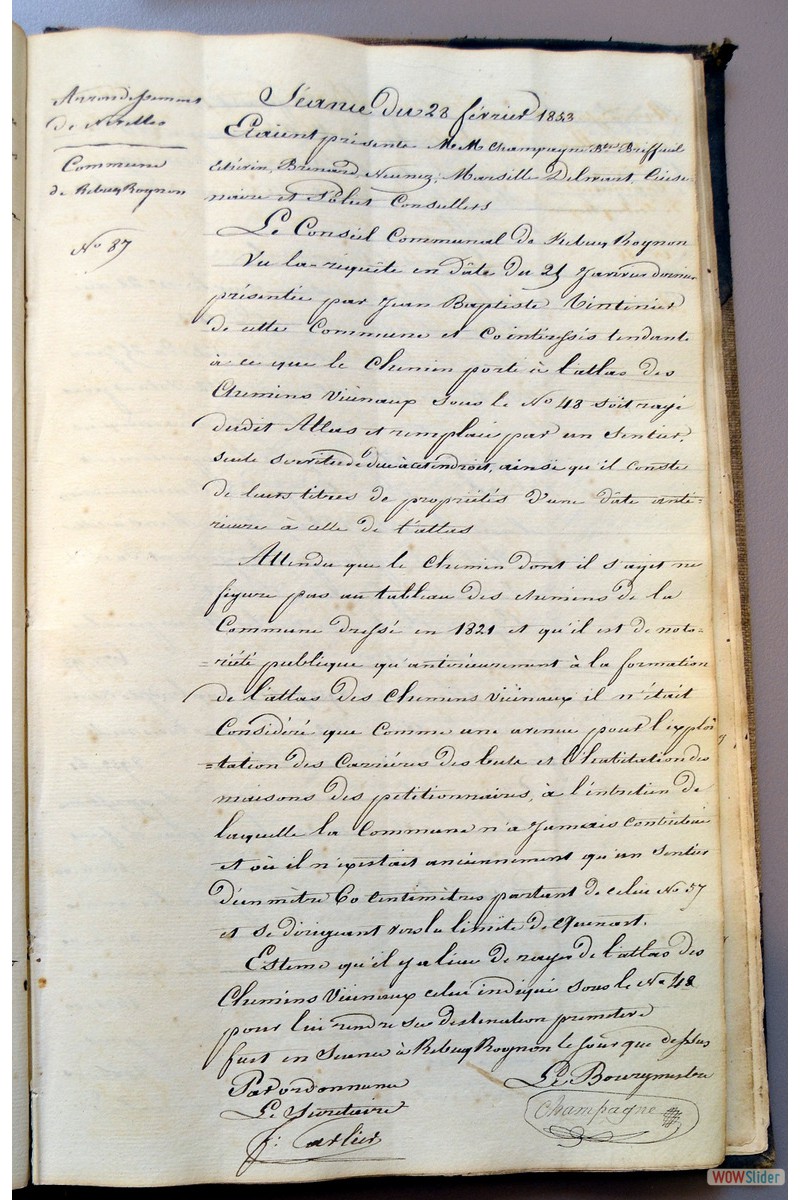 Arrondissement
de Nivelles
Commune
de Rebecq Rognon
No 87
Séance du 28 février 1853
Etaient présents M.M. Champagne Bre Briffeuil
Bernard, Neunez, Marsille Delwart,
naire et Consellers
Le Conseil Communal de Rebecq Rognon
Vu la requête en date du 21 Janvier dernier
présentée par Jean Baptiste Tintinier
de cette Commune et cointéressés tendant
à ce que le Chemin porté à l'atlas des
Chemins Viçinaux sous le No 48 soit rayé
dudit Atlas et remplacé par un Sentier,
seule servitude due à cet endroit, ainsi qu'il conste
de leurs titres de propriétés d'une date anté-
rieure à celle de l'atlas
Attendu que le Chemin dont il s'agit ne
figure pas au tableau des chemins de la
Commune dressé en 1821 et qu'il est de noto-
=riété publique qu'antérieurement à la formation
de l'atlas des Chemins Viçinaux il n'était
Considéré que Comme une avenue pour l'exploi
=tation des Carrières des et l'habitation des
maisons des petitionnaires, à l'entretien de
laquelle la Commune n'a Jamais contribué
et où il n'existait anciennement qu'un Sentier
d'un mètre 60 centimètres partant de celui No 57
et se dirigeant vers la limite de Quenast.
Estime qu'il y a lieu de rayer de l'atlas des
Chemins Viçinaux celui indiqué sous le No 48
pour lui rendre sa destination première
fait en Séance à Rebecq Rognon le jour que dessus
Par ordonnance
Le Bourgmestre
Le Secrétaire
Champagne
f: Carlier
WOWSlider